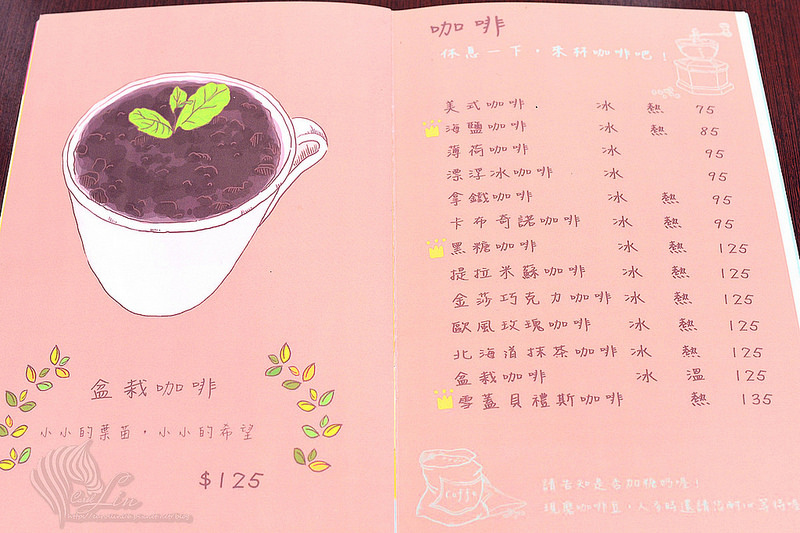 盆栽咖啡
小小的葉苗，小小的希望
$125
咖啡
休息一下，來杯咖啡吧！
美式咖啡 冰 熱 75
海鹽咖啡 冰 熱 85
薄荷咖啡 冰 95
漂浮冰咖啡 冰 95
拿鐵咖啡 冰 熱 95
卡布奇諾咖啡 冰 熱 95
黑糖咖啡 冰 熱 125
提拉米蘇咖啡 冰 熱 125
金莎巧克力咖啡 冰 熱 125
歐風玫瑰咖啡 冰 熱 125
北海道抹茶咖啡 冰 熱 125
盆栽咖啡 冰 溫 125
雪蓋貝禮斯咖啡 熱 135
Coffe
請告知是否加糖奶喔！
現磨咖啡豆，人多時還請您耐心等待唷
Lin